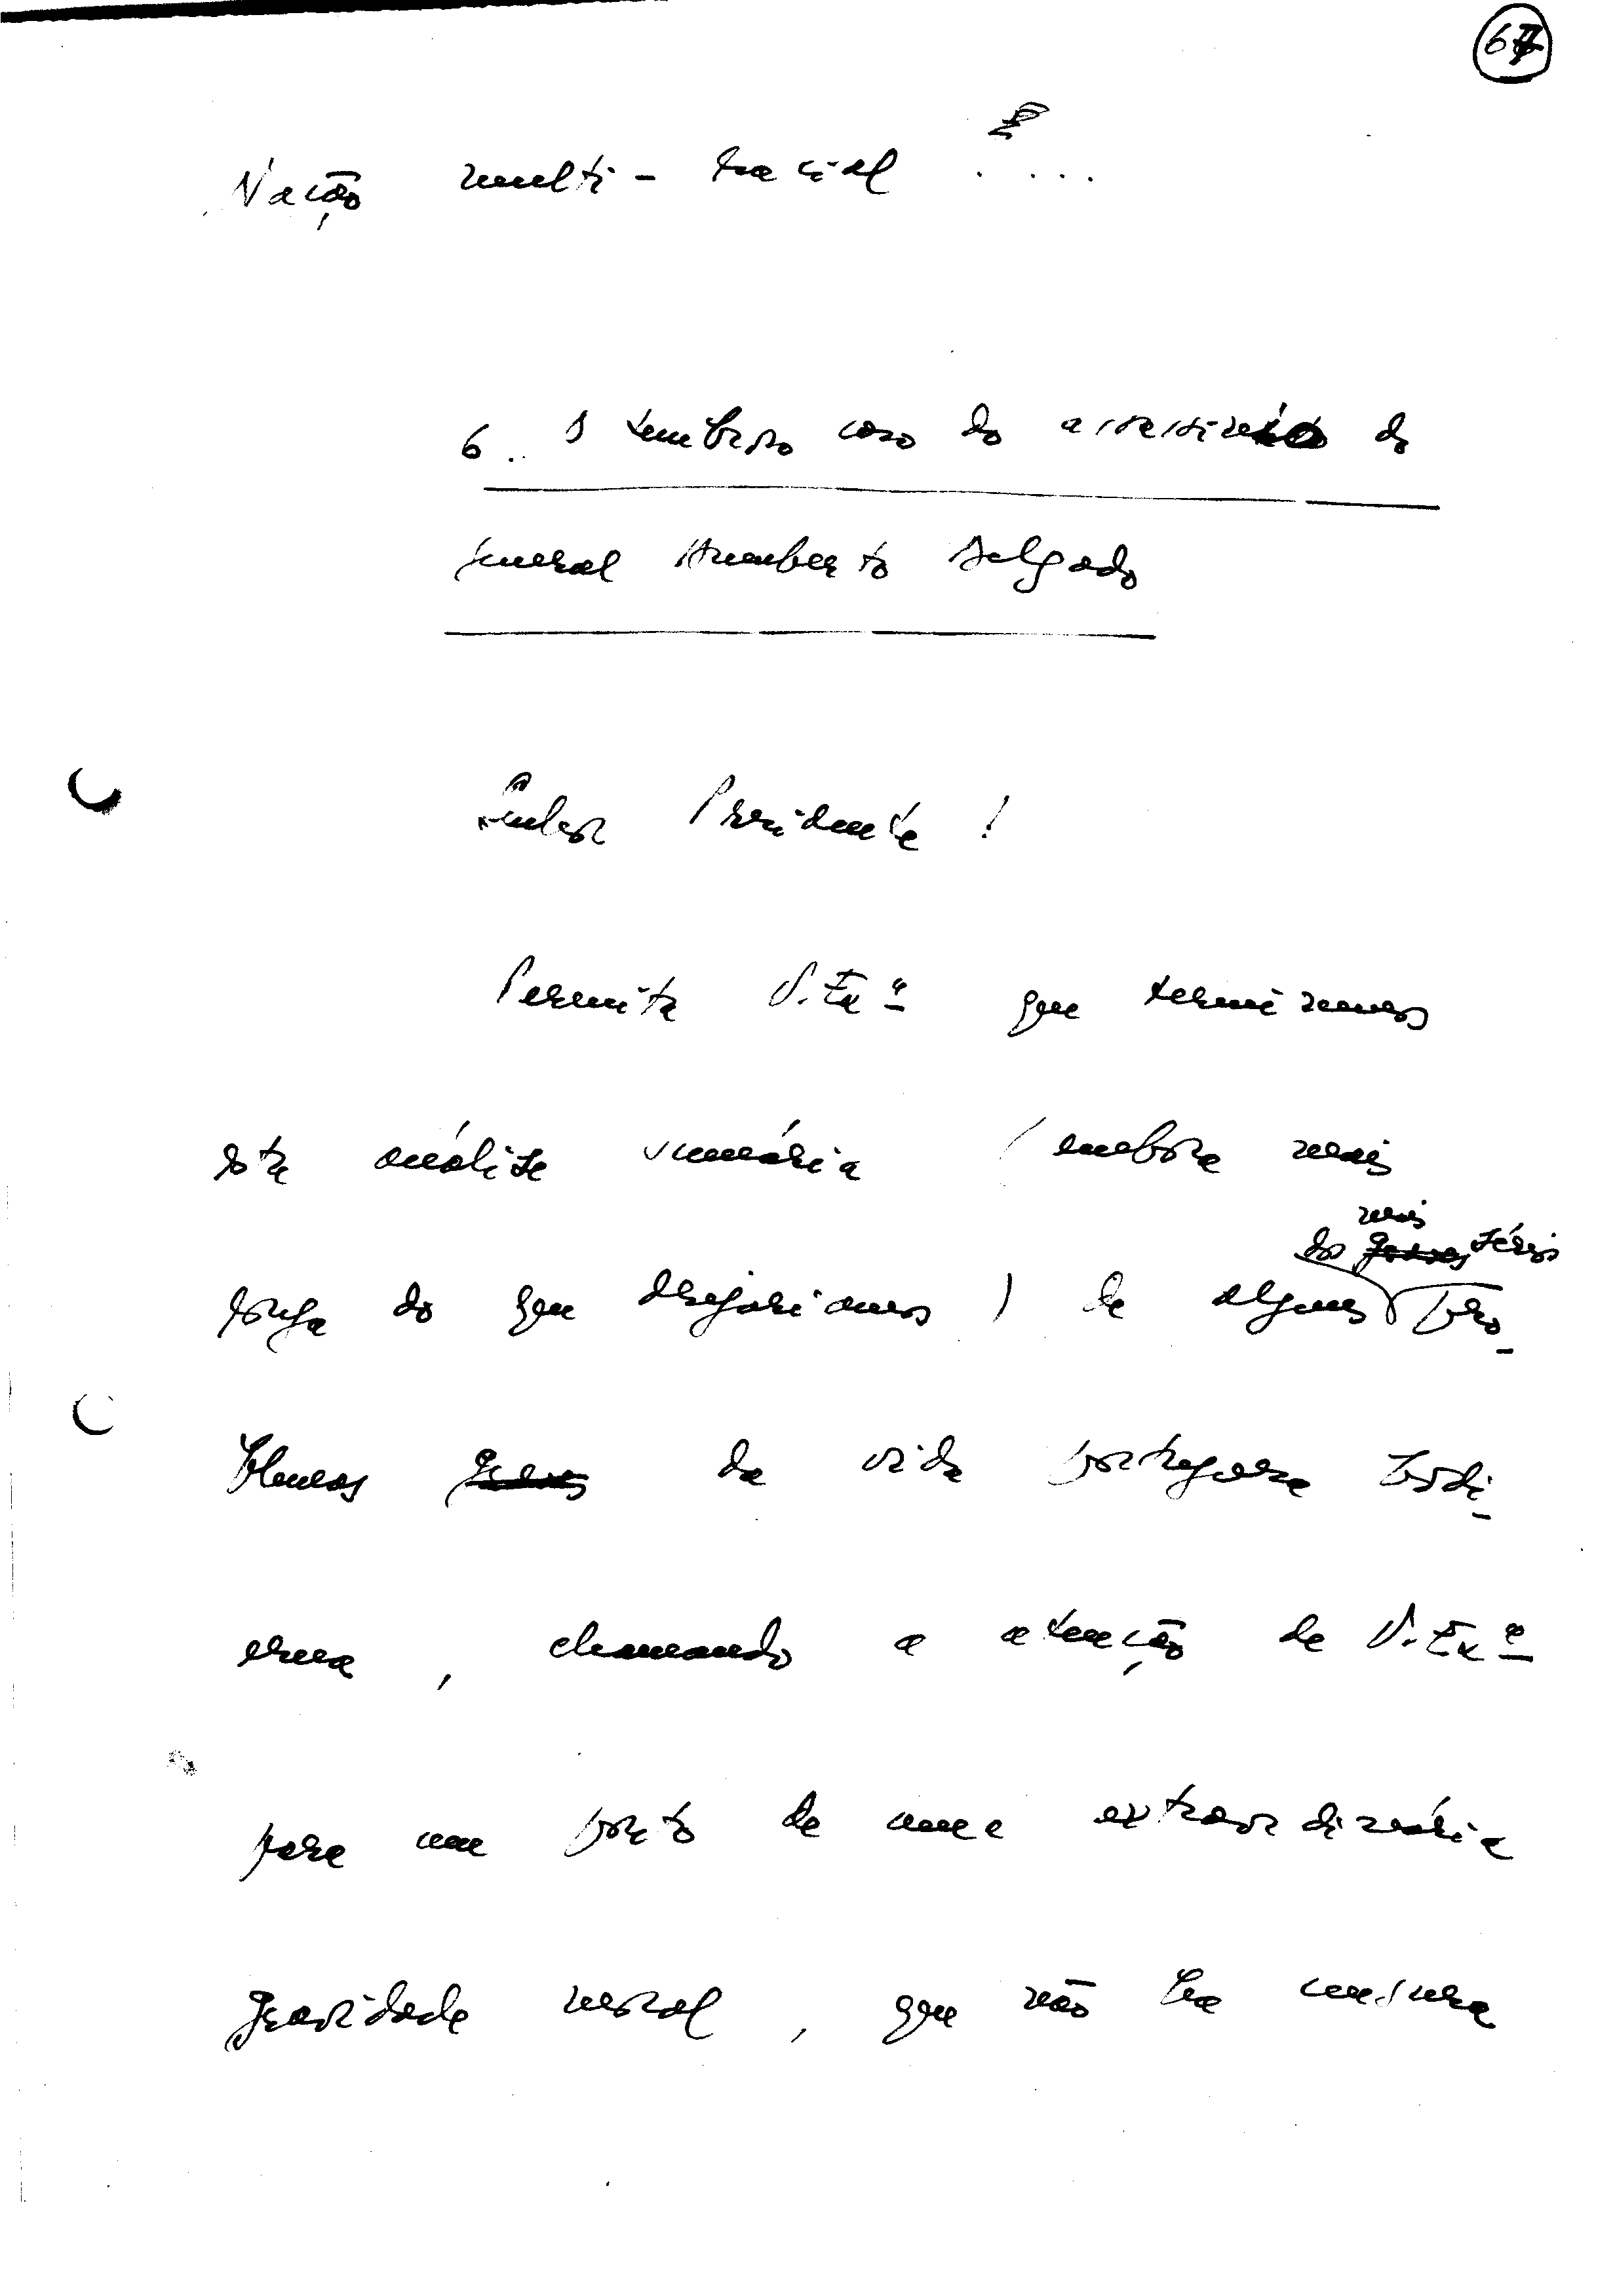 67
Nação multi-racial ....
6. O tenebroso caso do assassinato do
general Humberto Delgado
Senhor Presidente!
Permita V. Exª que terminemos
esta análise sumária (embora mais
longa do que desejaríamos) de alguns dos mais sérios pro-
blemas graves da vida portuguesa hodi-
erna, chamando a atenção de V. Exª
para um ponto de uma extraordinária
gravidade moral, que não há censura